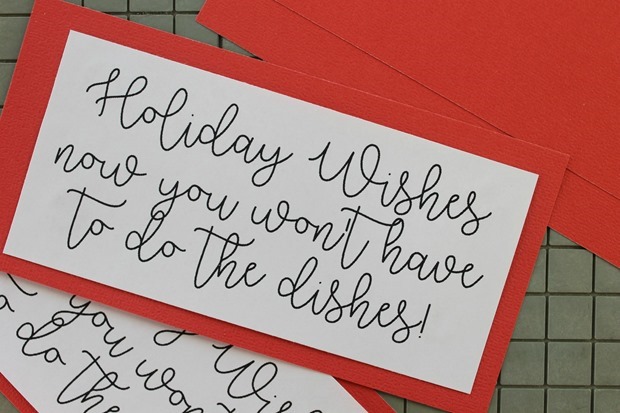 Holiday Wishes
now you won't have
to do the dishes!
you won't
to do the
Wis